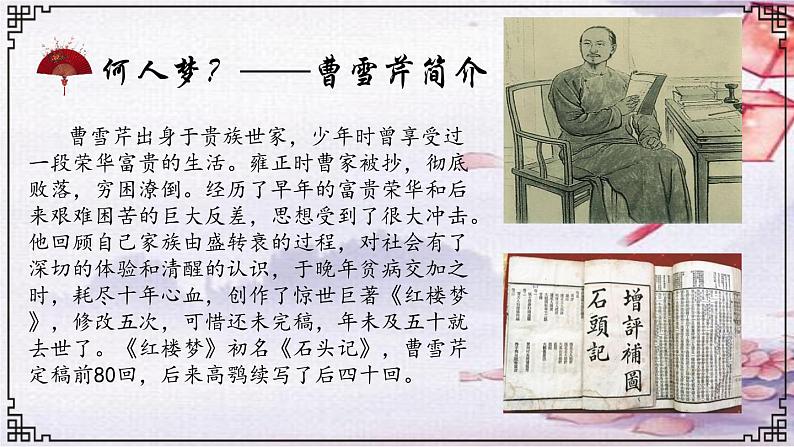 何人梦？——曹雪芹简介
曹雪芹出身于贵族世家，少年时曾享受过
一段荣华富贵的生活。雍正时曹家被抄，彻底
败落，穷困潦倒。经历了早年的富贵荣华和后
来艰难困苦的巨大反差，思想受到了很大冲击。
他回顾自己家族由盛转衰的过程，对社会有了
深切的体验和清醒的认识，于晚年贫病交加之
时，耗尽十年心血，创作了惊世巨著《红楼梦
》，修改五次，可惜还未完稿，年未及五十就
去世了。《红楼梦》初名《石头记》，曹雪芹
定稿前80回，后来高鹗续写了后四十回。
增評補圖
石頭記